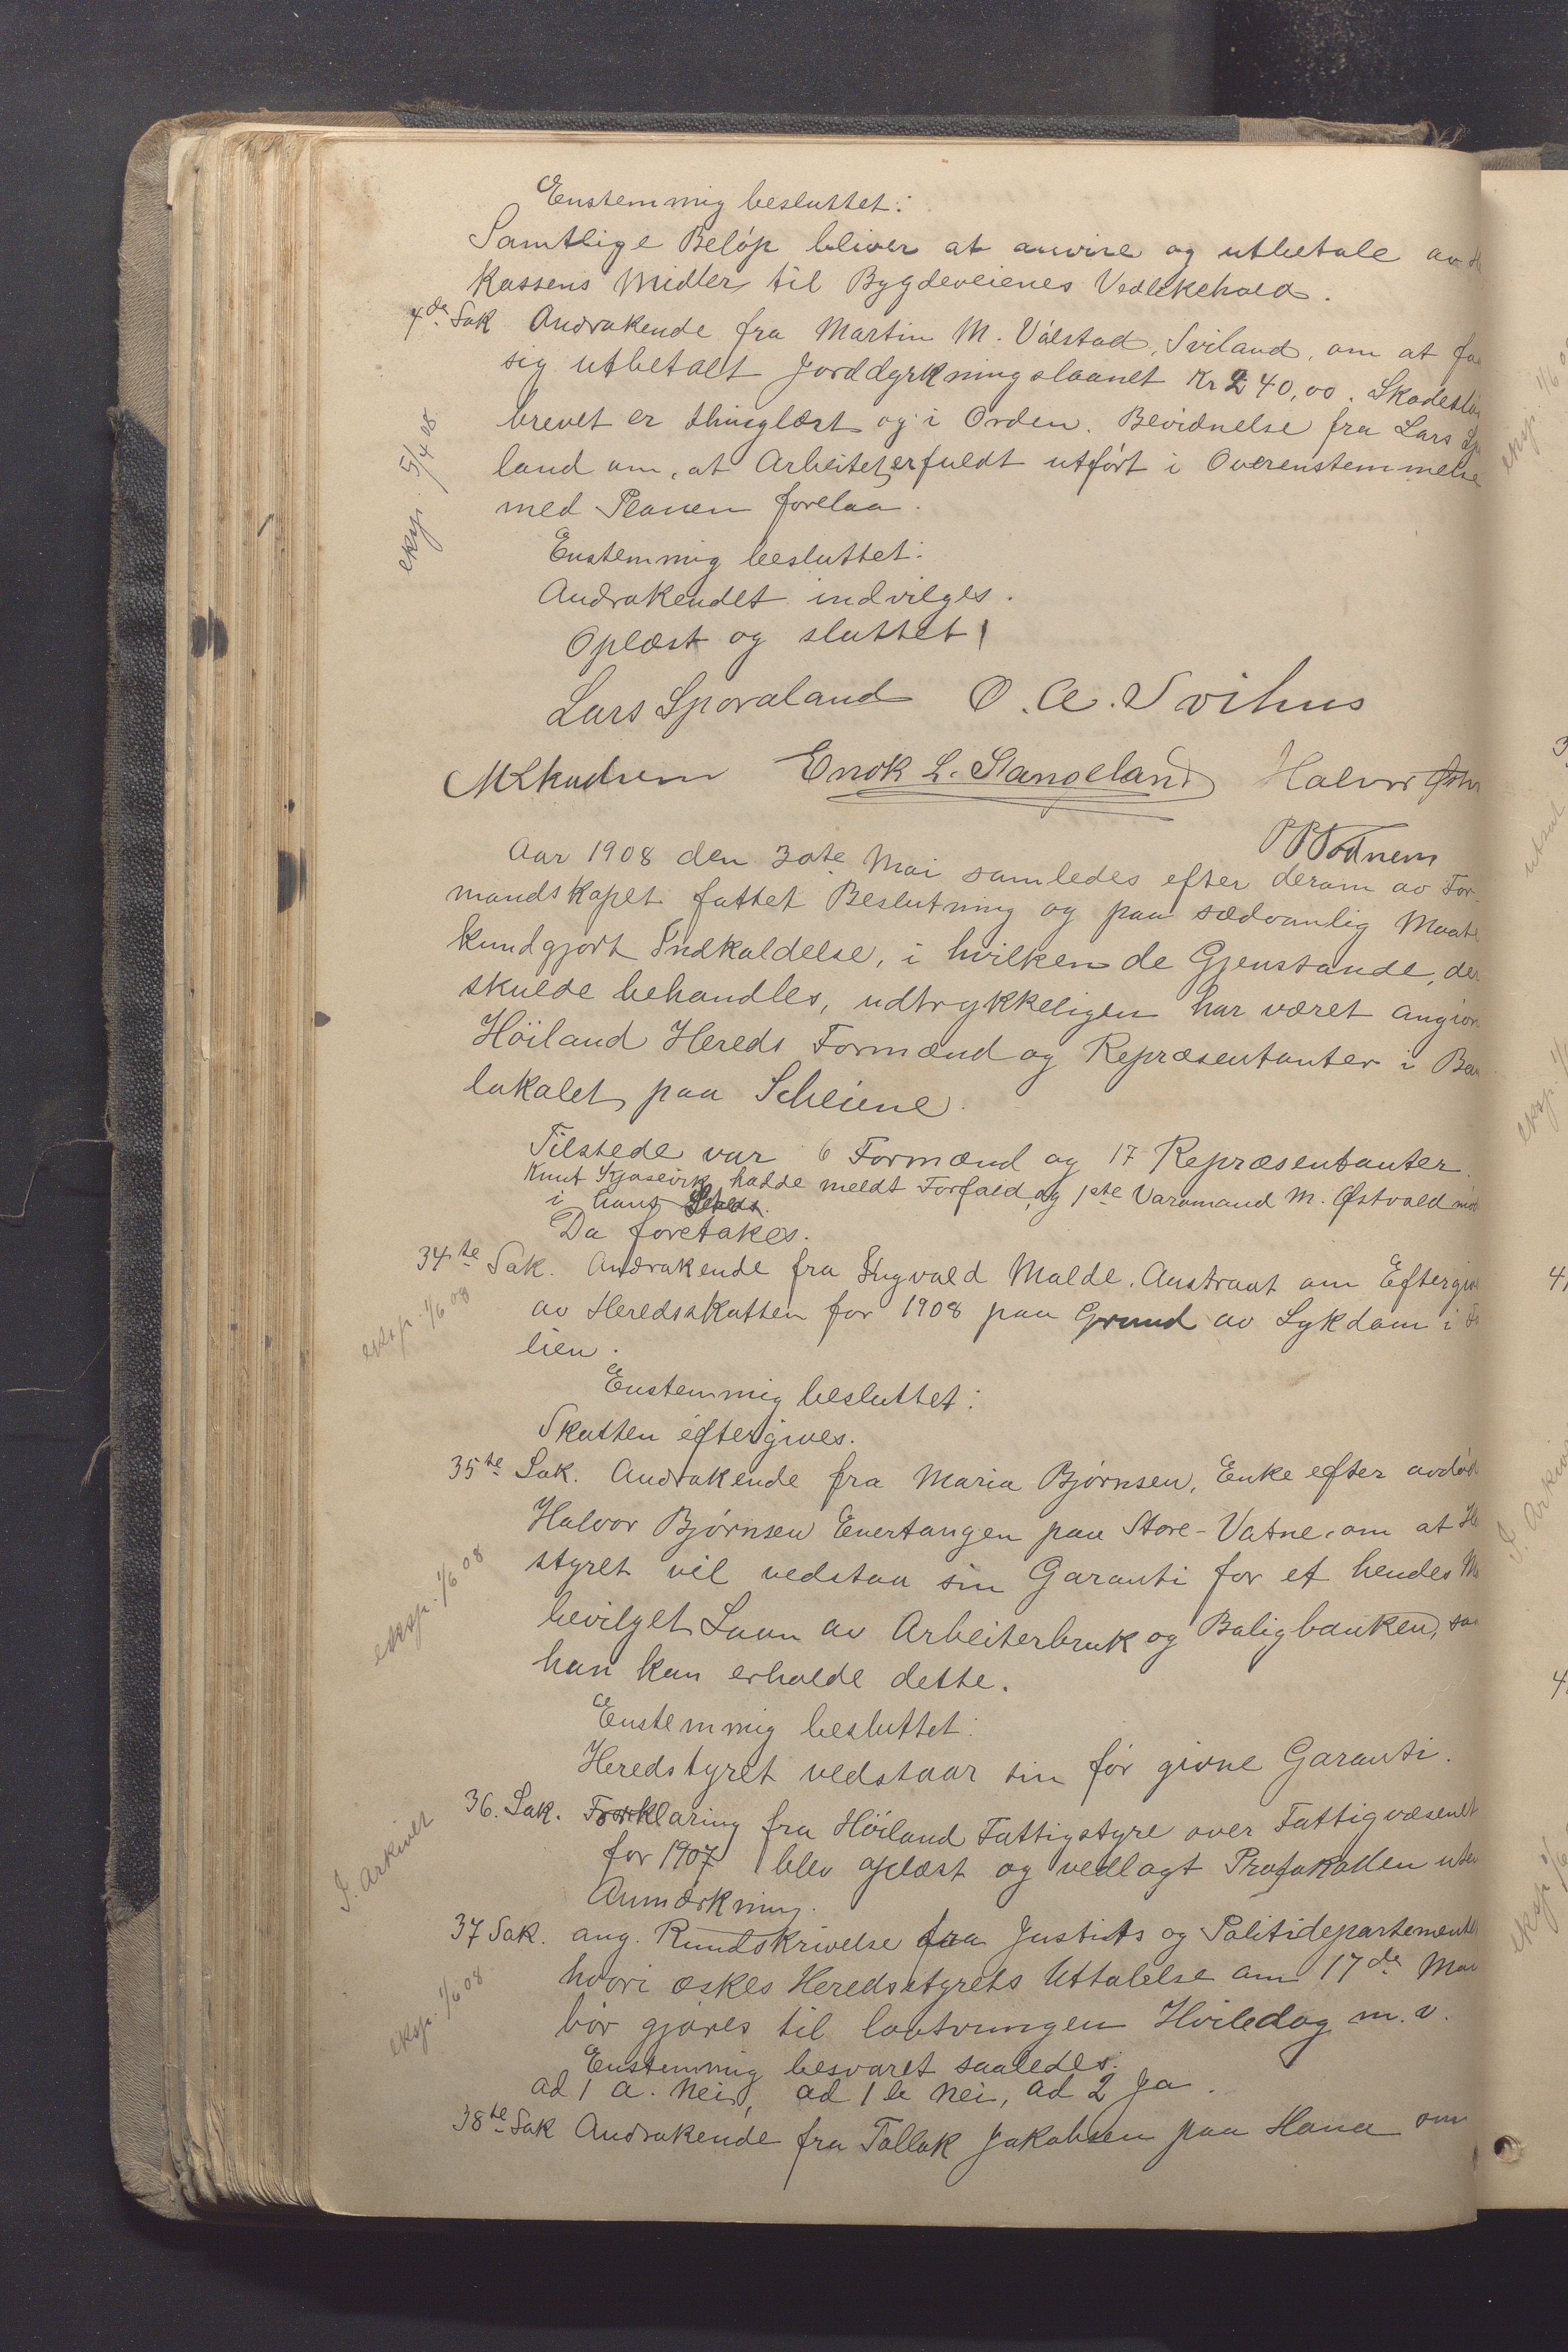 Enstemmig besluttet:
Samtlige Beløp bliver at anvise og utbetale av
Kassens Midler til Bygdeveienes Vedlikehold.
4de Sak Andrakende fra Martin M. Válstad, Sviland, om at faa
sig utbetalt Jorddyrkningslaanet Kr 240,00. Skadesløs
brevet er thinglæst og i Orden. Bevidnelse fra Lars
land om, at Arbeidet er fuldt utført i Overenstemmelse
med Planen forelaa.
eksp. 5/4 08
Enstemmig besluttet:
Andrakendet indvilges.
Oplæst og sluttet
Lars Sporaland O. A. Svihus
M Skadsem Enok L. Stangeland Halvor
P P Vatnem
Aar 1908 den 30te Mai samledes efter derom av For-
mandskapet fattet Beslutning og paa sædvanlig Maate
kundgjort Indkaldelse, i hvilken de Gjenstande, der
skulde behandles, udtrykkeligen har været angivne
Höiland Hereds Formænd og Repræsentanter i
lokalet paa Scheiene.
Tilstede var 6 Formænd og 17 Repræsentanter.
Knut Kjosevik hadde meldt Forfald, og 1ste Varamand M. Østvold
i hans Sted.
Da foretakes.
34te Sak. Andrakende fra Ingvald Malde, Austraat om Eftergiv
av Heredsskatten for 1908 paa Grund av Sykdom i
lien.
eksp. 1/6 08
Enstemmig besluttet:
Skatten eftergives.
35te Sak. Andrakende fra Maria Bjørnsen, Enke efter avdød
Halvor Bjørnsen Evertangen paa Store-Vatne, om at
styret vil vedstaa sin Garanti for et hendes
bevilget Laan av Arbeiterbruk og Boligbanken,
hun kan erholde dette.
eksp. 1/6 08
Enstemmig besluttet:
Heredstyret vedstaar sin før givne Garanti.
36. Sak. Forklaring fra Höiland Fattigstyre over Fattigvæsenet
for 1907 blev oplæst og vedlagt Protokollen uten
Anmærkning.
I. Arkivet
37 Sak. ang. Rundskrivelse fra Justits og Politidepartementet
hvori æskes Heredsstyrets Uttalelse om 17de Mai
bör gjøres til lovtvungen Hviledag m.v.
eksp. 1/6 08
Enstemmig besvaret saaledes:
ad 1 a. Nei, ad 1 b Nei, ad 2 Ja.
38te Sak Andrakende fra Tollak Jakobsen paa Hana om